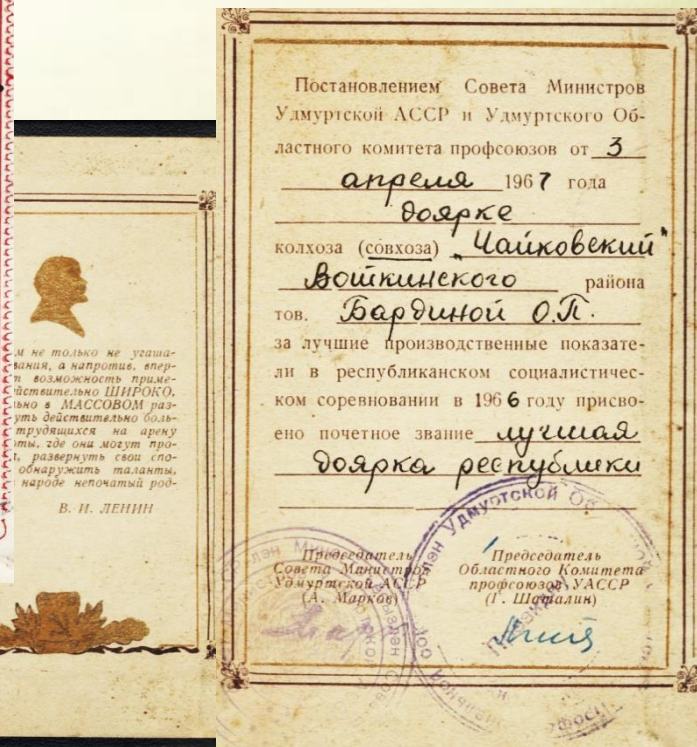 м не только не угаша-
вания, а напротив, впер-
т возможность приме-
йствительно ШИРОКО,
льно в МАССОВОМ раз-
уть действительно боль-
трудящихся на арену
оты, где они могут про-
, развернуть свои спо-
обнаружить таланты,
народе непочатый род-
В. И. ЛЕНИН
Постановлением Совета Министров
Удмуртской АССР и Удмуртского Об-
ластного комитета профсоюзов от 3
апреля 1967 года
доярке
колхоза (совхоза) „Чайковский"
Воткинского района
тов. Бардиной О.П.
за лучшие производственные показате-
ли в республиканском социалистичес-
ком соревновании в 1966 году присво-
ено почетное звание лучшая
доярка республики
Председатель
Совета Министров
Удмуртской АССР
(А. Марков)
Председатель
Областного Комитета
профсоюзов УАССР
(Г. Шаталин)